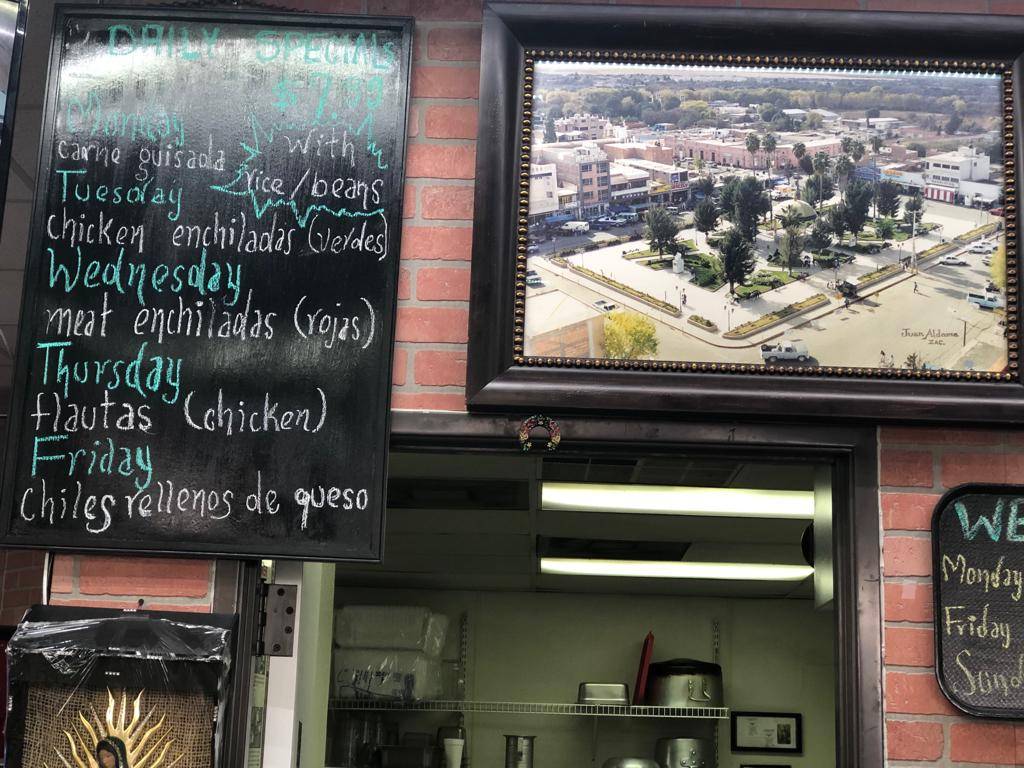 DAILY SPECIALS
$7.99
Monday
carne guisada
with
rice/beans
Tuesday
chicken enchiladas (verdes)
Wednesday
meat enchiladas (rojas)
Thursday
flautas (chicken)
Friday
chiles rellenos de queso
Juan Aldama
ZAC.
WE
Monday
Friday
Sund